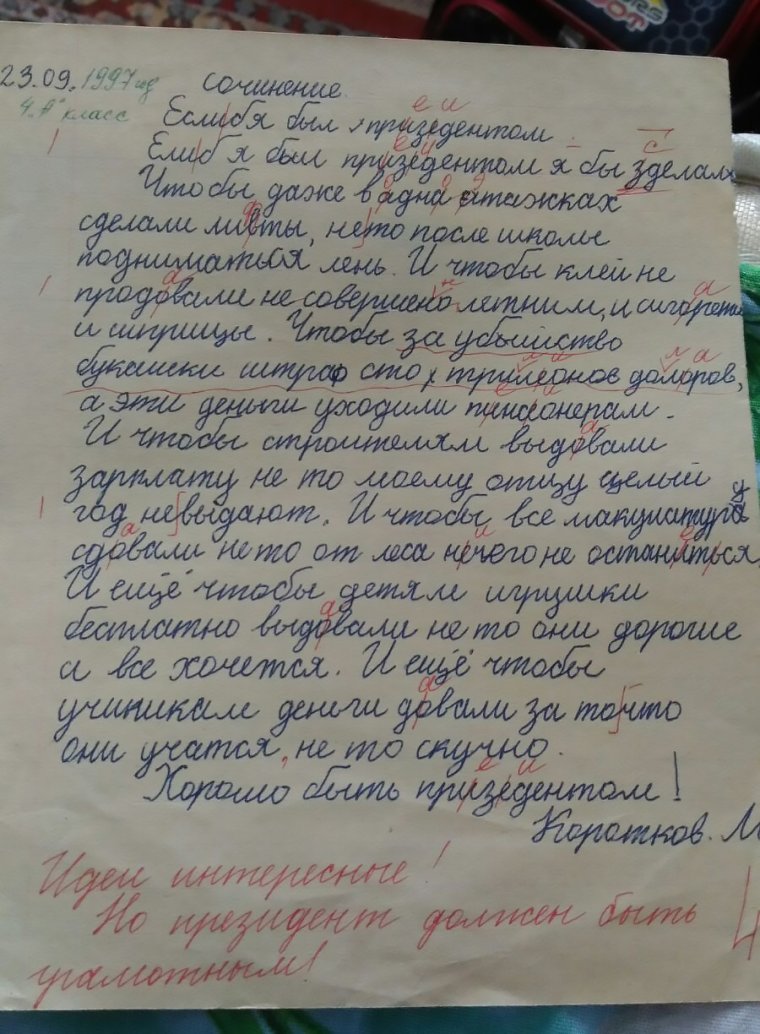 23.09.1997 год
сочинение.
4 "А" класс
Если б я был призедентом
Если б я был призедентом я бы зделал
Чтобы даже в адна итажках
сделали ливты, нето после школы
подниматься лень. И чтобы клей не
продовали не совершено летним, и сигореты
и шприцы. Чтобы за убыйство
букашки штраф сто трилеонов долоров,
а эти деньги уходили пинсеонерам.
И чтобы строителям выдовали
зарплату не то моему отцу целый
год невыдают. И чтобы все макулатуру
сдовали не то от леса нечего не останиться
И ещё чтобы детям игрушки
бесплатно выдовали не то они дорогие
а все хочется. И ещё чтобы
учиникам деньги довали за точто
они учатся, не то скучно.
Хорошо быть призедентом!
Коротков. М
Идеи интересные!
Но президент должен быть
грамотным!
4